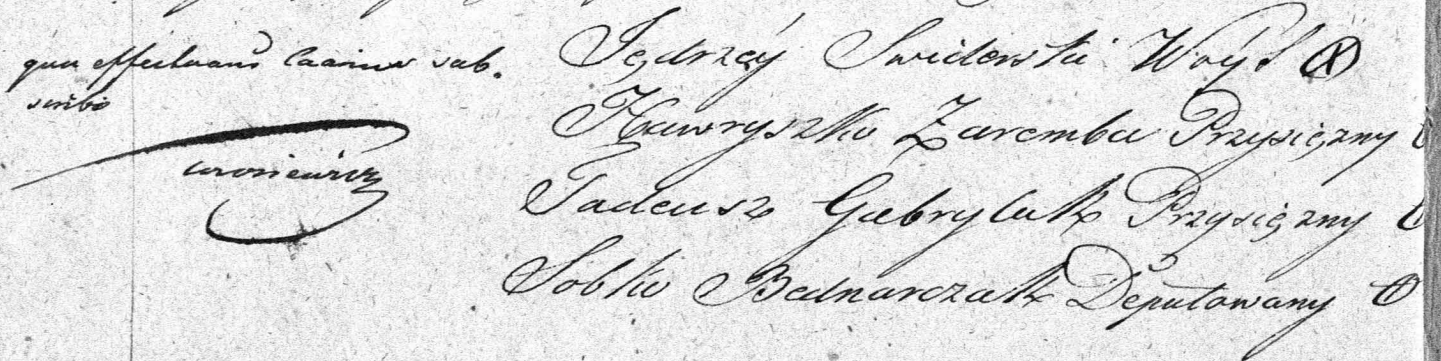 qua effectuans Caaime sub.
scribo
Jędrzéy Swiderski Woyt
Hawryszko Zaremba Przysięzny
Tadeusz Gabryluk Przysięzny
Sobko Bednarczuk Deputowany